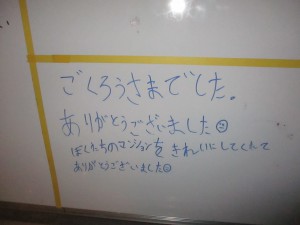 ごくろうさまでした。
ありがとうございました☺
ぼくたちのマンションをきれいにしてくれて
ありがとうございました☺